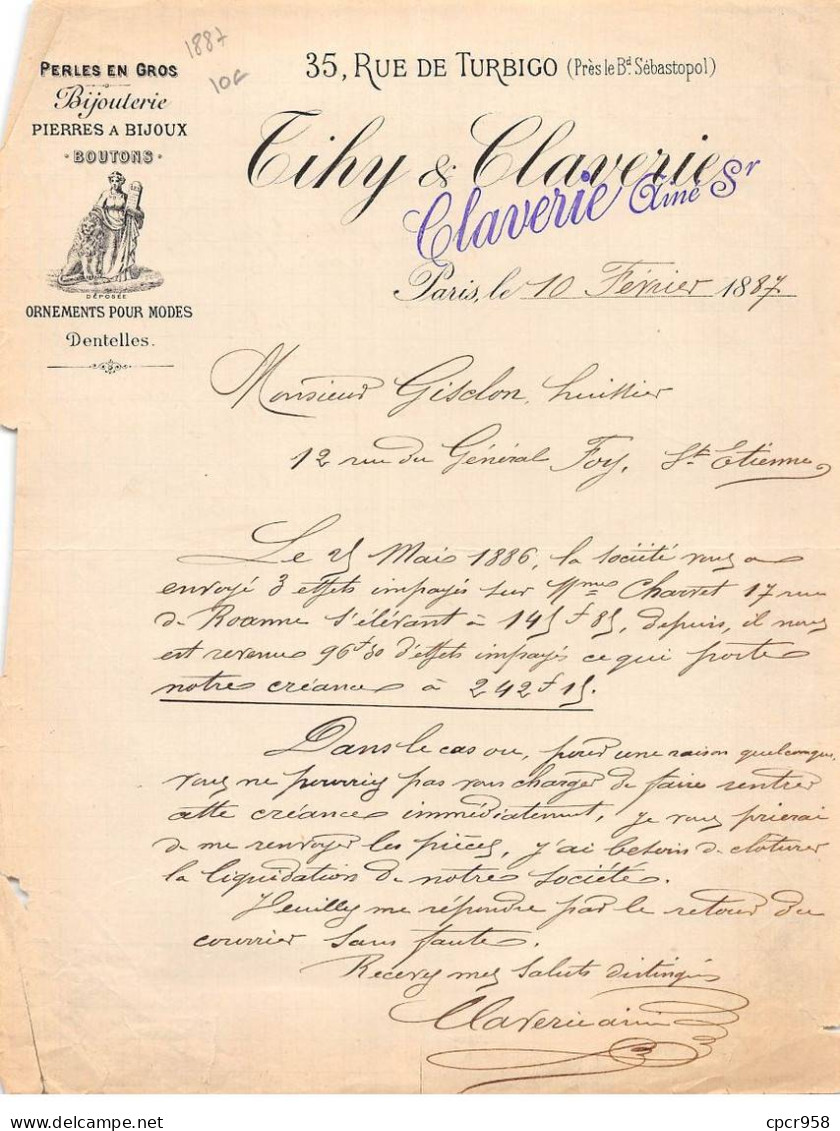 1887
10€
PERLES EN GROS
Bijouterie
PIERRES A BIJOUX
BOUTONS
DÉPOSÉE
ORNEMENTS POUR MODES
Dentelles.
35, RUE DE TURBIGO (Près le Bd. Sébastopol)
Tihy & Claverie
Claverie Ainé Sr
Paris, le 10 Février 1887
Monsieur Gisclon, huissier
12 rue du Général Foy, St. Etienne
Le 25 Mai 1886, la société vous a
envoyé 3 effets impayés sur Mme Charvet 17 rue
de Roanne s'élevant à 145f 85, depuis, il nous
est revenu 96f 30 d'effets impayés ce qui porte
notre créance à 242f 15.
Dans le cas ou, pour une raison quelconque,
vous ne pourriez pas vous charger de faire rentrer
cette créance immédiatement, je vous prierai
de me renvoyer les pièces, j'ai besoin de cloturer
la liquidation de notre société.
Veuillez me répondre par le retour du
courrier sans faute.
Recevez mes saluts distingués
Claverie ainé
cpcr958